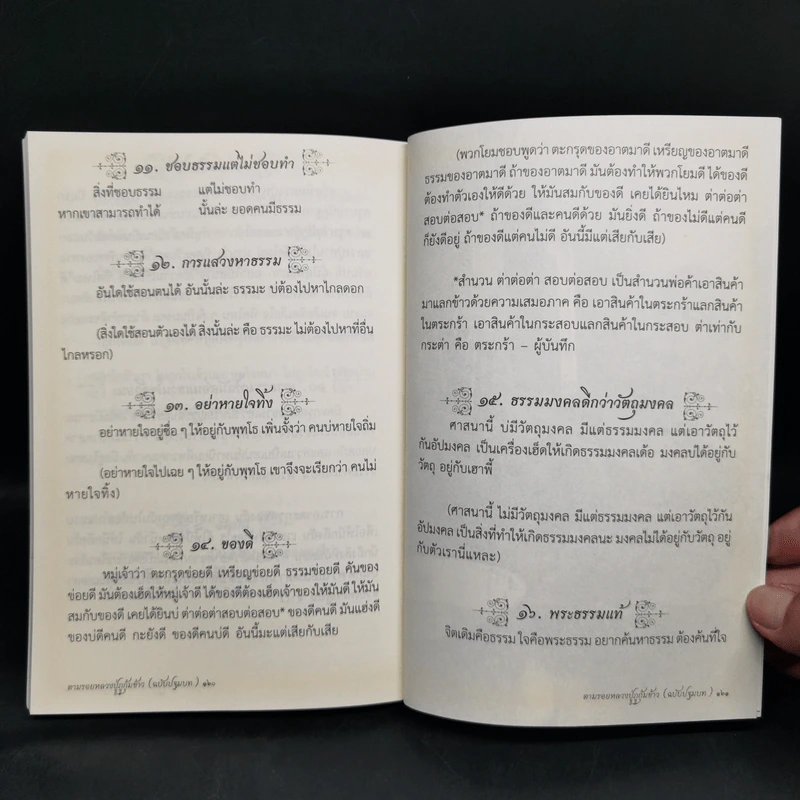 ๑๑. ชอบธรรมแต่ไม่ชอบทำ
สิ่งที่ชอบธรรม แต่ไม่ชอบทำ
หากเขาสามารถทำได้ นั้นล่ะ ยอดคนมีธรรม
๑๒. การแสวงหาธรรม
อันใดใช้สอนตนได้ อันนั้นล่ะ ธรรมะ บ่ต้องไปหาไกลดอก
(สิ่งใดใช้สอนตัวเองได้ สิ่งนั้นล่ะ คือ ธรรมะ ไม่ต้องไปหาที่อื่น
ไกลหรอก)
๑๓. อย่าหายใจทิ้ง
อย่าหายใจอยู่ซื่อ ๆ ให้อยู่กับพุทโธ เพิ่นจั้งว่า คนบ่หายใจถิ่ม
(อย่าหายใจไปเฉย ๆ ให้อยู่กับพุทโธ เขาจึงจะเรียกว่า คนไม่
หายใจทิ้ง)
๑๔. ของดี
หมู่เจ้าว่า ตะกรุดข่อยดี เหรียญข่อยดี ธรรมข่อยดี คันของ
ข่อยดี มันต้องเฮ็ดให้หมู่เจ้าดี ได้ของดีต้องเฮ็ดเจ้าของให้มันดี ให้มัน
สมกับของดี เคยได้ยินบ่ ต่าต่อต่าสอบต่อสอบ* ของดีคนดี มันแฮ่งดี
ของบ่ดีคนดี กะยังดี ของดีคนบ่ดี อันนี้มะแต่เสียกับเสีย
ตามรอยหลวงปู่ (ฉบับปฐมบท) ๑๒๐
(พวกโยมชอบพูดว่า ตะกรุดของอาตมาดี เหรียญของอาตมาดี
ธรรมของอาตมาดี ถ้าของอาตมาดี มันต้องทำให้พวกโยมดี ได้ของดี
ต้องทำตัวเองให้ดีด้วย ให้มันสมกับของดี เคยได้ยินไหม ต่าต่อต่า
สอบต่อสอบ* ถ้าของดีและคนดีด้วย มันยิ่งดี ถ้าของไม่ดีแต่คนดี
ก็ยังดีอยู่ ถ้าของดีแต่คนไม่ดี อันนี้มีแต่เสียกับเสีย)
*สำนวน ต่าต่อต่า สอบต่อสอบ เป็นสำนวนพ่อค้าเอาสินค้า
มาแลกข้าวด้วยความเสมอภาค คือ เอาสินค้าในตระกร้าแลกสินค้า
ในตระกร้า เอาสินค้าในกระสอบแลกสินค้าในกระสอบ ต่าเท่ากับ
กระต่า คือ ตระกร้า – ผู้บันทึก
๑๕. ธรรมมงคลดีกว่าวัตถุมงคล
ศาสนานี้ บ่มีวัตถุมงคล มีแต่ธรรมมงคล แต่เอาวัตถุไว้
กันอัปมงคล เป็นเครื่องเฮ็ดให้เกิดธรรมมงคลเด้อ มงคลบ่ได้อยู่กับ
วัตถุ อยู่กับเฮาพี้
(ศาสนานี้ ไม่มีวัตถุมงคล มีแต่ธรรมมงคล แต่เอาวัตถุไว้กัน
อัปมงคล เป็นสิ่งที่ทำให้เกิดธรรมมงคลนะ มงคลไม่ได้อยู่กับวัตถุ อยู่
กับตัวเรานี่แหละ)
๑๖. พระธรรมแท้
จิตเดิมคือธรรม ใจคือพระธรรม อยากค้นหาธรรม ต้องค้นที่ใจ
ตามรอยหลวงปู่ (ฉบับปฐมบท) ๑๒๑